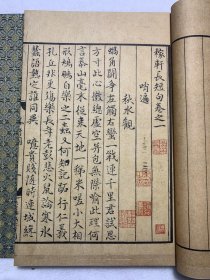 稼軒長短句卷之一
哨遍
秋水觀
蝸角鬭爭左觸右蠻一戰連千里君試思
方寸此心微總虛空并包無際喻此理何
言泰山毫末從來天地一稊米嗟小大相
形鳩鵬自樂之二蟲又何知記跖行仁義
孔丘非更殤樂長年老彭悲火鼠論寒冰
蠶語熱定誰同異
噫貴賤隨時連城纔